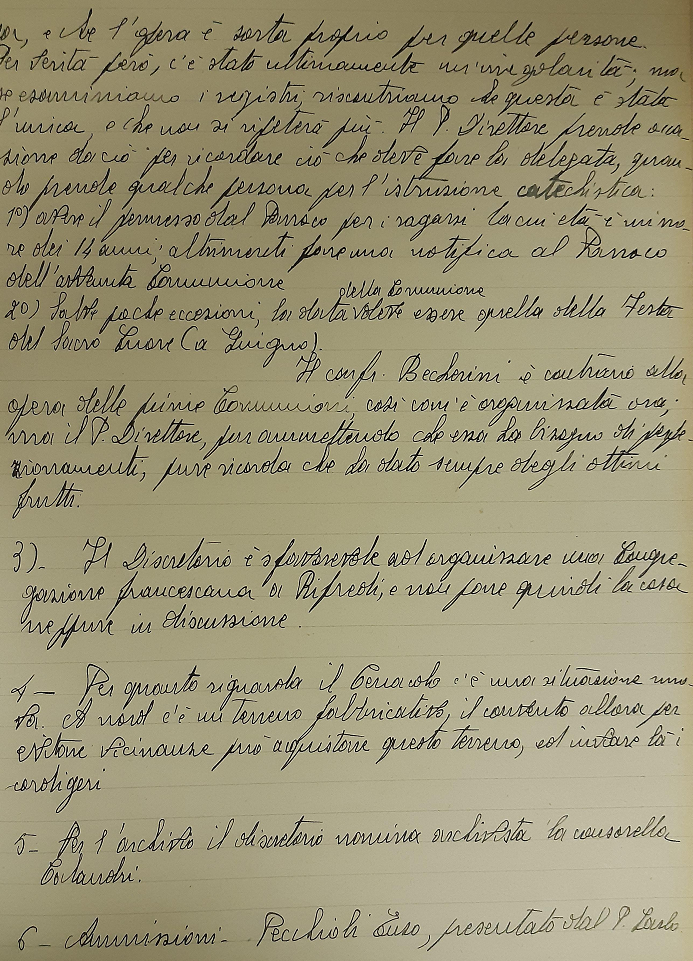 e che l'opera è sorta proprio per quelle persone.
Per verità però, c'è stato ultimamente un'irregolarità; ma
se esaminiamo i registri, riscontriamo che questa è stata
l'unica, e che non si ripeterà più. Il P. Direttore prende occa-
sione da ciò per ricordare ciò che deve fare la delegata, quan-
do prende qualche persona per l'istruzione catechistica:
1°) avere il permesso dal Parroco per i ragazzi la cui età è mino-
re dei 14 anni; altrimenti fare una notifica al Parroco
dell'avvenuta Comunione
della Comunione
2°) Salve poche eccezioni, la data deve essere quella della Festa
del Sacro Cuore (a Giugno).
Il confr. Becherini è contrario alla
opera delle prime Comunioni, così com'è organizzata ora;
ma il P. Direttore, pur ammettendo che essa ha bisogno di perfe-
zionamenti, pure ricorda che ha dato sempre degli ottimi
frutti.
3)- Il Discretorio è sfavorevole ad organizzare una Congre-
gazione francescana a Rifredi, e non pone quindi la cosa
neppure in discussione.
4- Per quanto riguarda il Cenacolo c'è una situazione nuo-
va. A nord c'è un terreno fabbricativo, il convento allora per
evitare vicinanze può acquistare questo terreno, ed inviare là i
cordigeri
5- Per l'archivio il discretorio nomina archivista la consorella
Calandri.
6- Ammissioni- Pecchioli Enzo, presentato dal P. Carlo